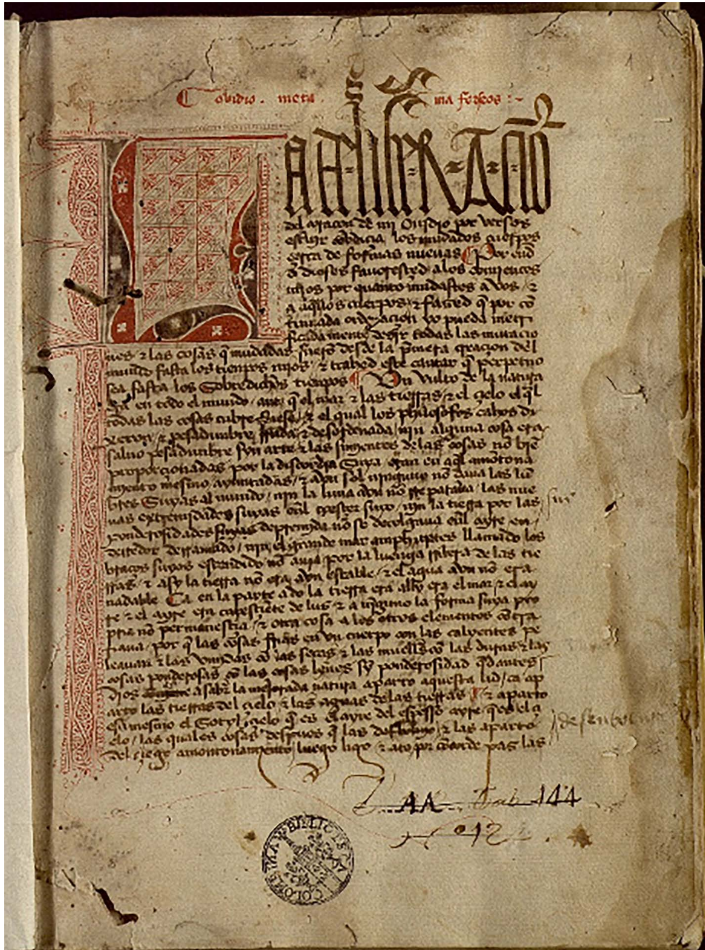 ovidio . meta ma forseos
La deliberacion
del coraçon de mi Ouidio por versos
cobdicia los mudados cuerpos
de formas nueuas Por
dioses fauoresced a los comiencos
por quanto mudastes a vos /
a aq̃llos cuerpos / & fazed q̃ por cõ
tinuada ordenacion yo pueda metri
ficada mente dezir todas las mutacio
nes & las cosas q̃ mudadas desde la p̃mera creacion del
mundo fasta los tienpos mios / & trahed este cantar q̃ perpetuo
sea fasta los sobredichos tienpos Un vulto de la natura
era en todo el mundo / ante q̃ el mar & las tierras / & el çielo el q̃l
todas las cosas cubre / & el qual los philosofos cahos di
xeron / & pesadumbre & desordenada / nin alguna cosa era
saluo pesadumbre syn arte & las simientes de las cosas nõ biẽ
proporcionadas por la discordia suya eran en aq̃l amontona
miento mesmo ayuntadas / & avn sol ninguno nõ daua las lũ
bres suyas al mundo / nin la luna avn nõ reparaua / las nue
uas extremidades suyas cõ el crescer suyo / nin la tierra por las
ponderosidades suyas nõ se colgaua en el ayre en
derredor derramado / nin el grande mar llamado los
braços suyos estendido nõ auia por la luenga ribera de las tie
rras / & asy la tierra nõ era avn estable / & el agua avn nõ era
nadable Ca en la parte ado la tierra era alli era el mar & el ay
re & el ayre era de luz & a ninguno la forma suya pro
pria nõ permanescia / & otra cosa a los otros elementos cõtra
riaua / por q̃ las cosas frias en vn cuerpo con las calientes pe
leauan & las vmidas cõ las secas & las muelles cõ las duras & las
cosas ponderosas cõ las cosas leues sy ponderosidad
dios a saber la mejorada natura aparto aquesta lid / ca ap
arto las tierras del çielo & las aguas de las tierras & aparto
eso mesmo el sotyl çielo q̃ es el ayre del espesso ayre
las quales cosas despues q̃ las & las aparto
del çiego amontonamiento luego ligo & ato por concorde paz las
desenboluio
AA Tab 144
nº 12
BIBLIOTECA COLOMBINA